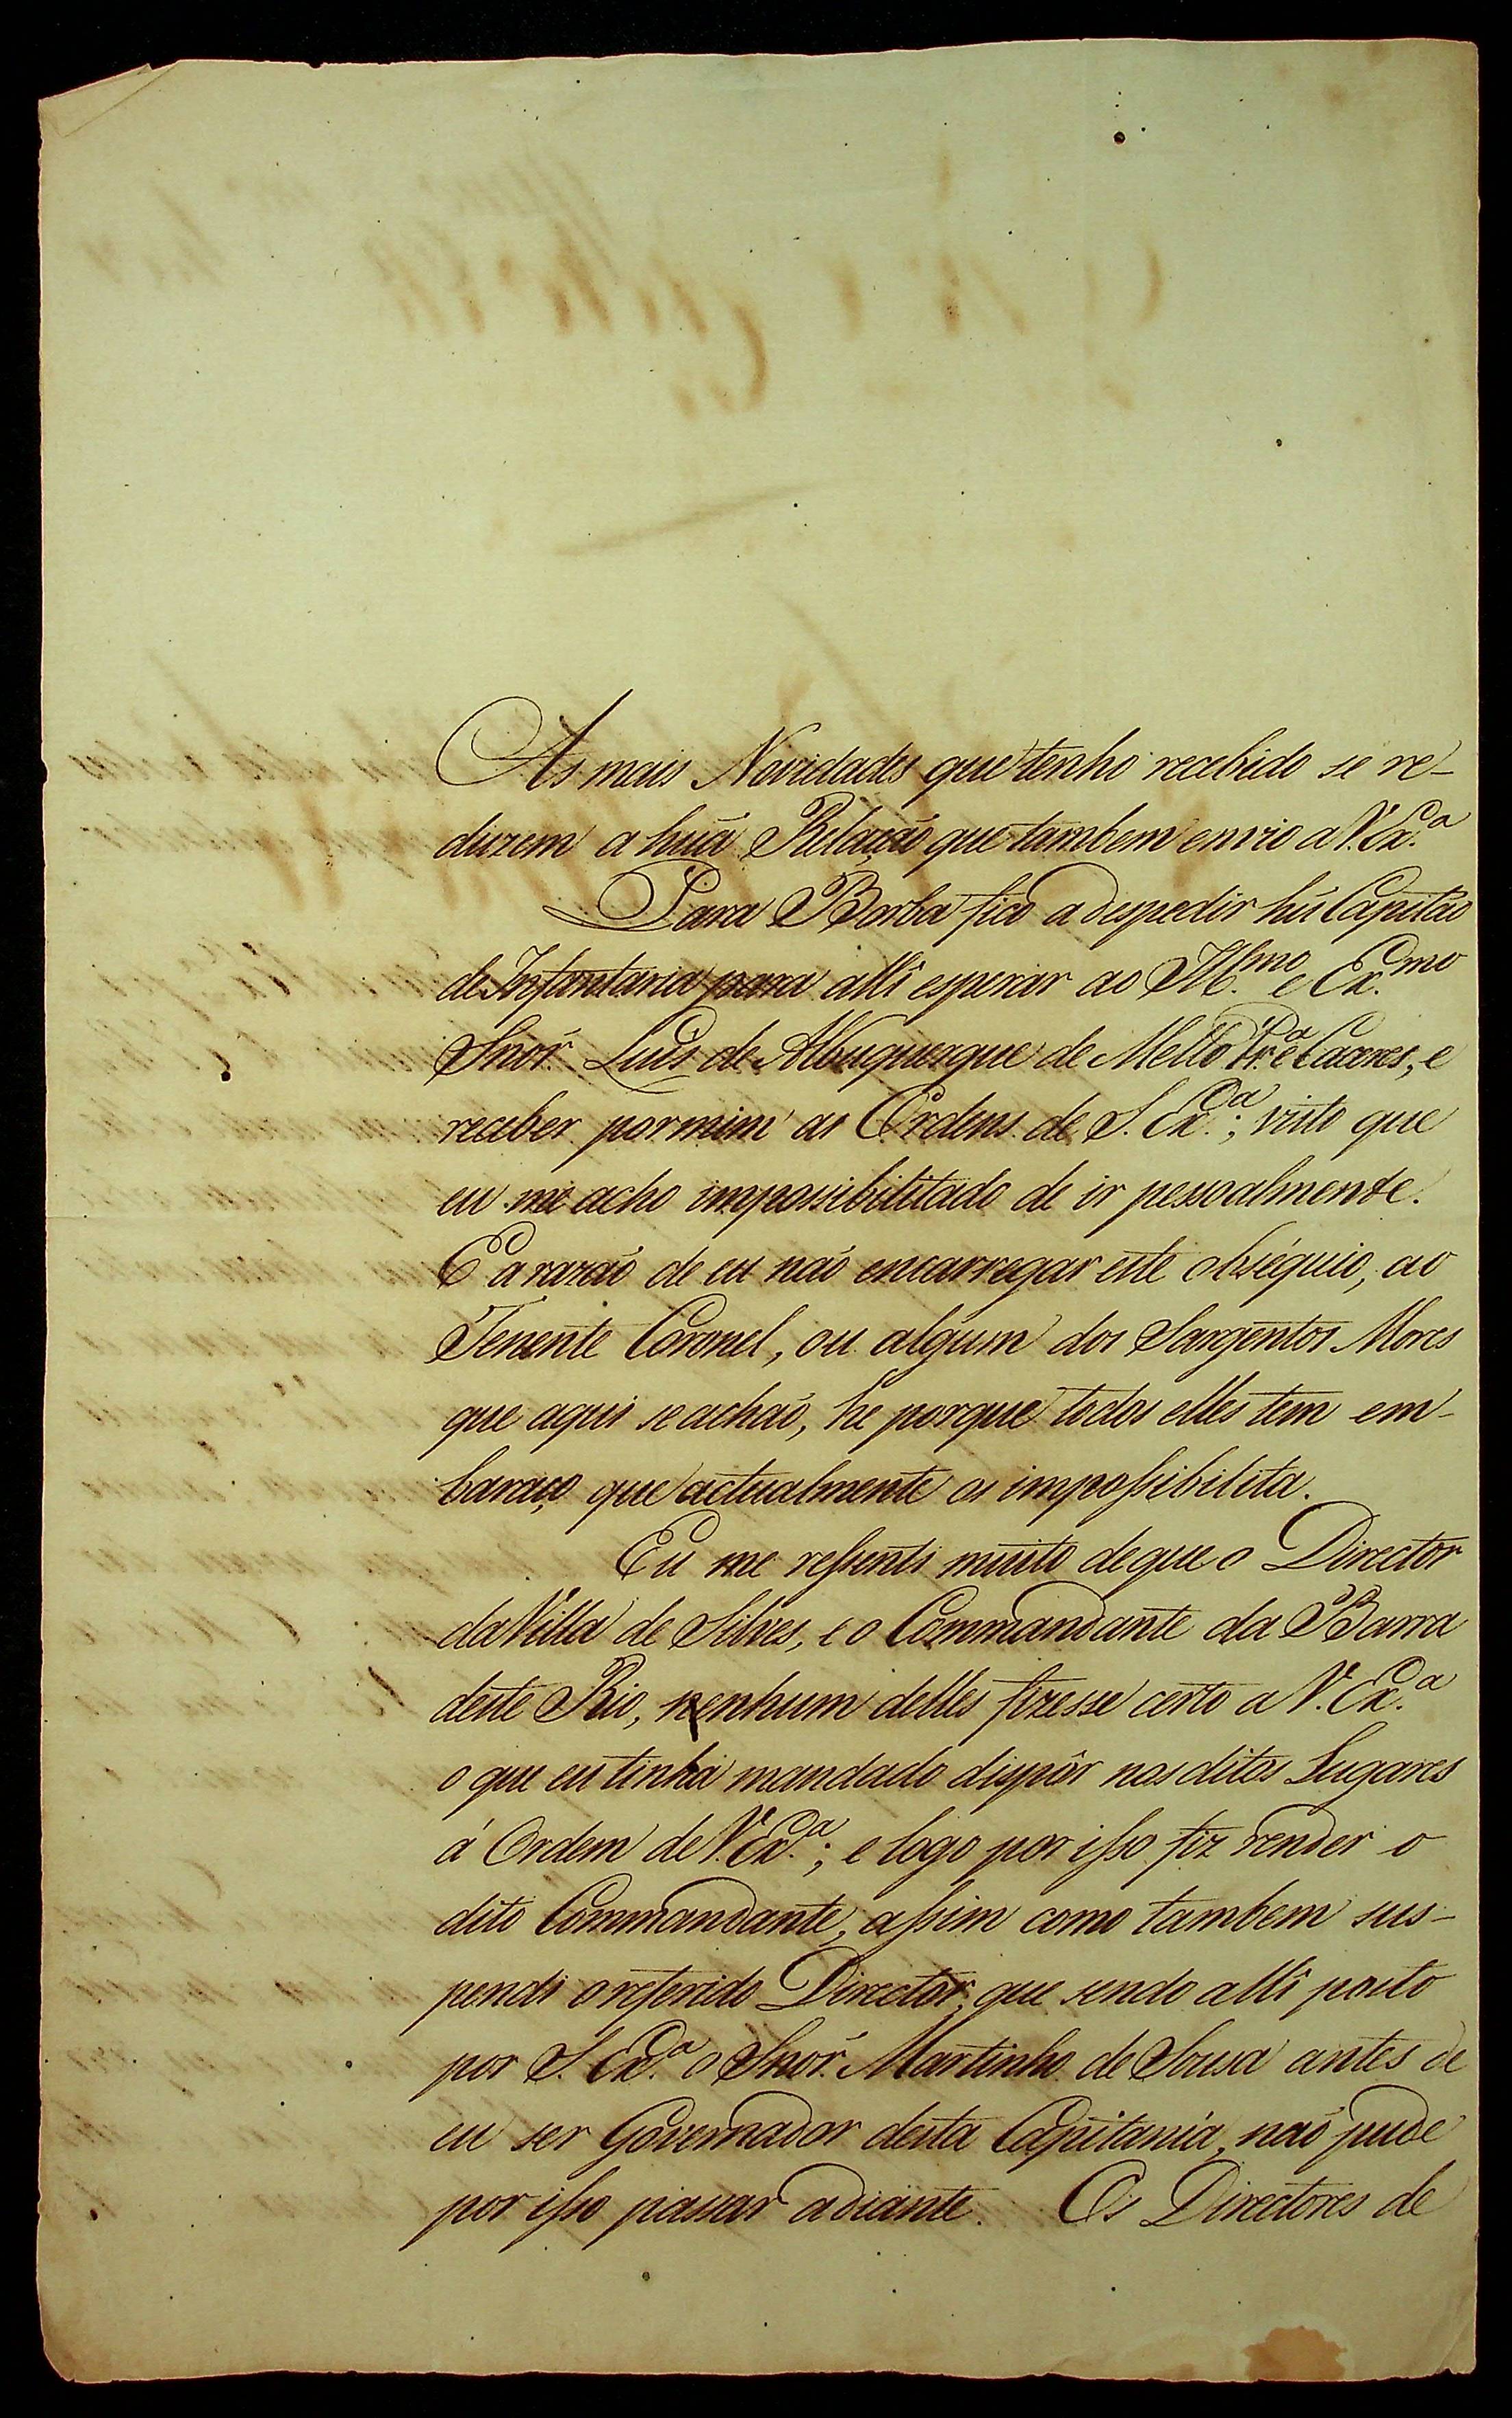 As mais Novidades que tenho recebido se re-
duzem a huã Relação que tambem envio a V. Ex.ª
Para Borba fico a despedir hũ Capitão
de Infantaria para allî esperar ao Ill.mo e Ex.mo
Snor̃. Luis de Albuquerque de Mello Pr.ª e Caceres, e
receber por mim as Ordens de S. Ex.ª; visto que
eu me acho impossibilitado de ir pessoalmente.
E a razaõ de eu naõ encarregar este obséquio, ao
Tenente Coronel, ou algum dos Sargentos Mores
que aqui se achaõ, he porque todos elles tem em-
baraço que actualmente os impoſsibilita.
Eu me reſsenti muito de que o Director
da Villa de Silves, e o Commandante da Barra
deste Rio, nenhum delles fizesse certo a V. Ex.ª
o que eu tinha mandado dispôr nos ditos Lugares
á Ordem de V. Ex.ª; e logo por iſso fiz render o
dito Commandante, aſsim como tambem sus-
pendi o referido Director, que sendo allî posto
por S. Ex.ª o Snor̃. Martinho de Sousa antes de
eu ser Governador desta Capitania, naõ pude
por iſso passar adiante. Os Directores de